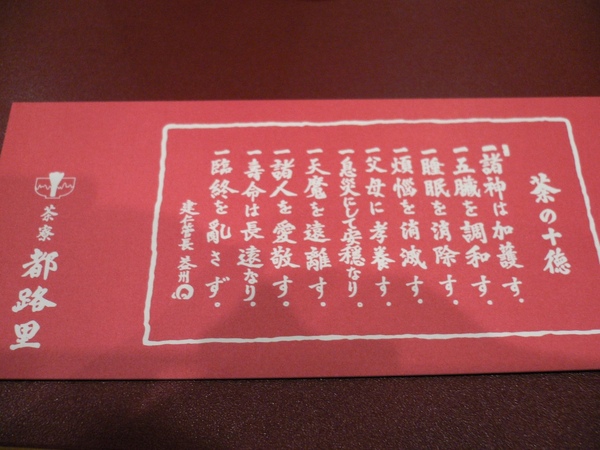 茶の十徳
一諸神は加護す。
一五臓を調和す。
一睡眠を消除す。
一煩悩を消滅す。
一父母に孝養す。
一息災にして安穏なり。
一天魔を遠離す。
一諸人を愛敬す。
一寿命は長遠なり。
一臨終を乱さず。
建仁管長 益州
茶寮
都路里